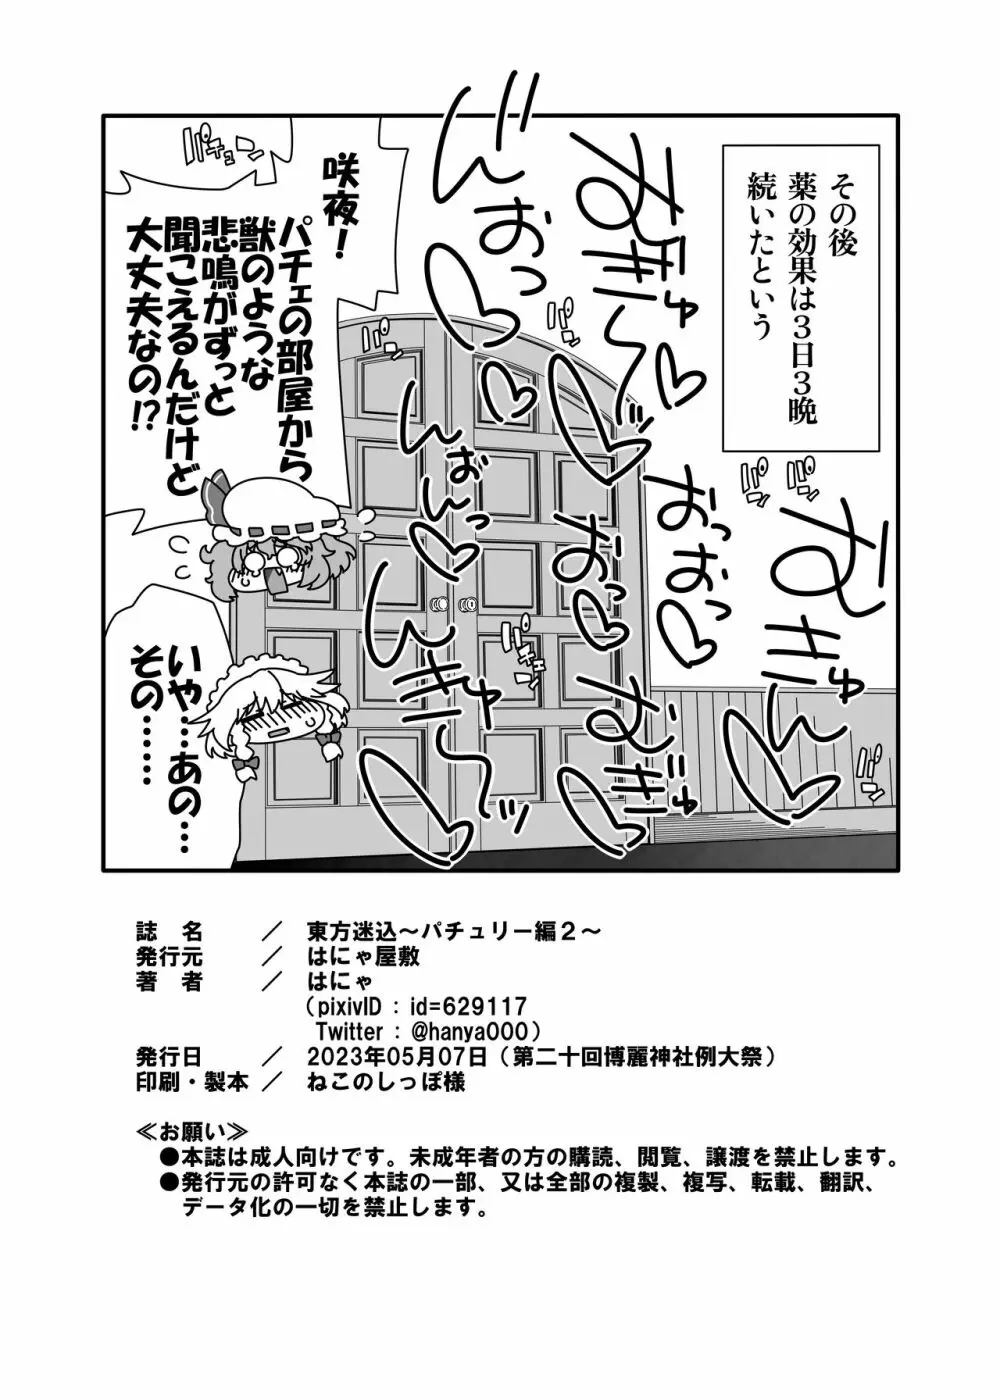 その後
薬の効果は3日3晩
続いたという
咲夜!
パチェの部屋から
獣のような
悲鳴がずっと
聞こえるんだけど
大丈夫なの!?
いや…あの…
その……
パチュン
パン
パン
パン
パン
パチュン
おっおっ
おぎゅ
おっ
んおんっ
んぎゅ〜ッ
んおっ
誌　名　／　東方迷込～パチュリー編２～
発行元　／　はにゃ屋敷
著　者　／　はにゃ
（pixivID : id=629117
Twitter : @hanya000）
発行日　／　2023年05月07日（第二十回博麗神社例大祭）
印刷・製本　／　ねこのしっぽ様
≪お願い≫
●本誌は成人向けです。未成年者の方の購読、閲覧、譲渡を禁止します。
●発行元の許可なく本誌の一部、又は全部の複製、複写、転載、翻訳、
データ化の一切を禁止します。